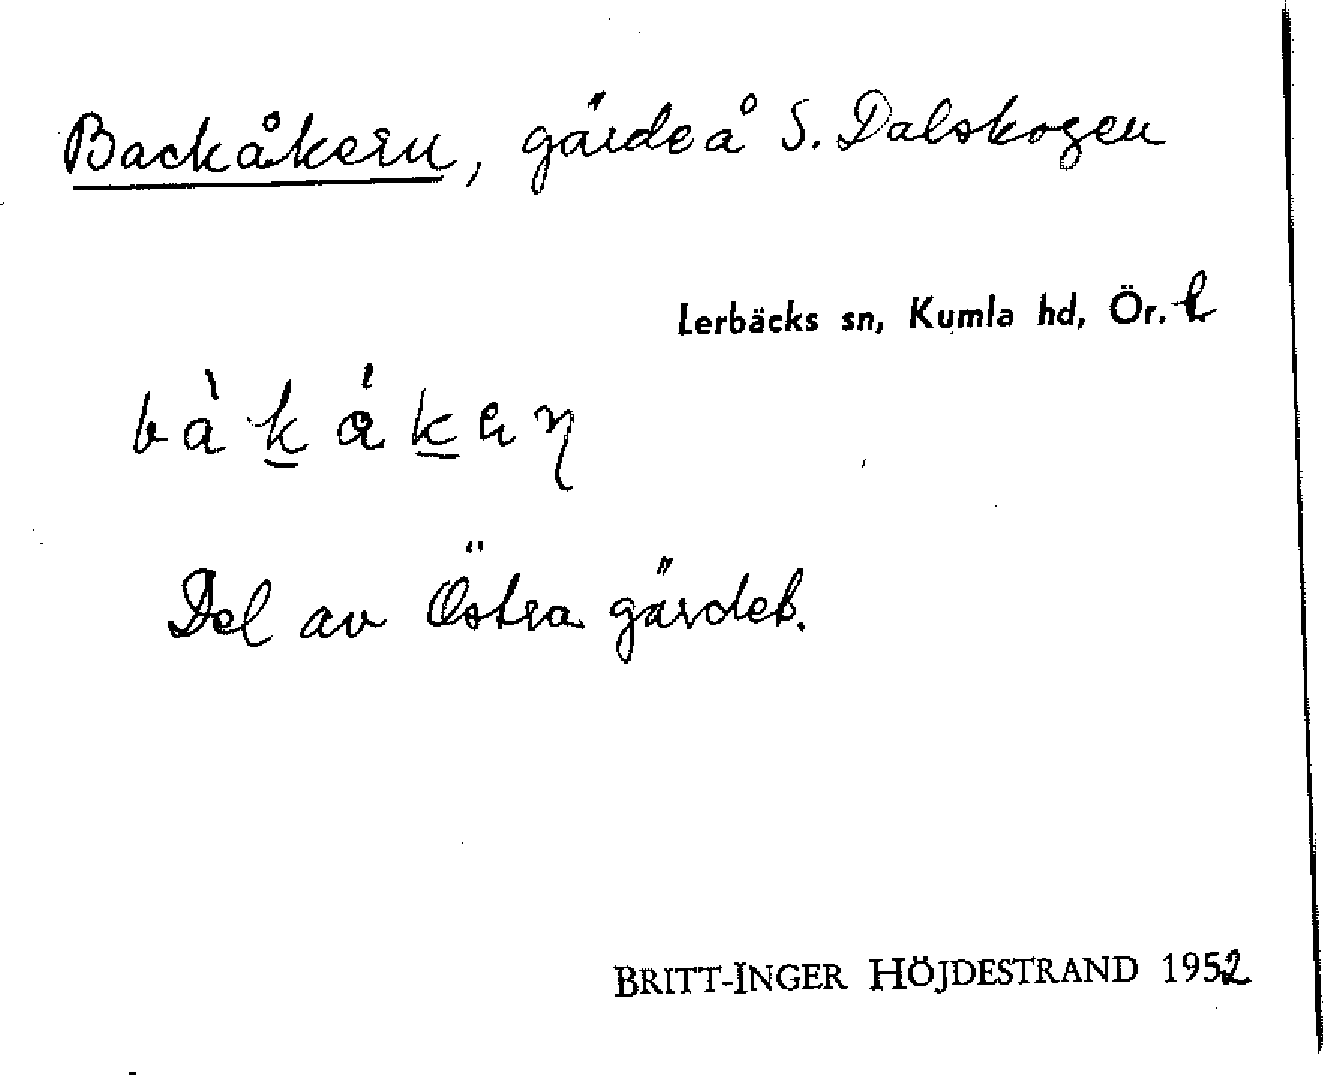 Backåkern, gärde å S. Dalskogen
Lerbäcks sn, Kumla hd, Ör. l
Del av Östra gärdet.
BRITT-INGER HÖJDESTRAND 1952